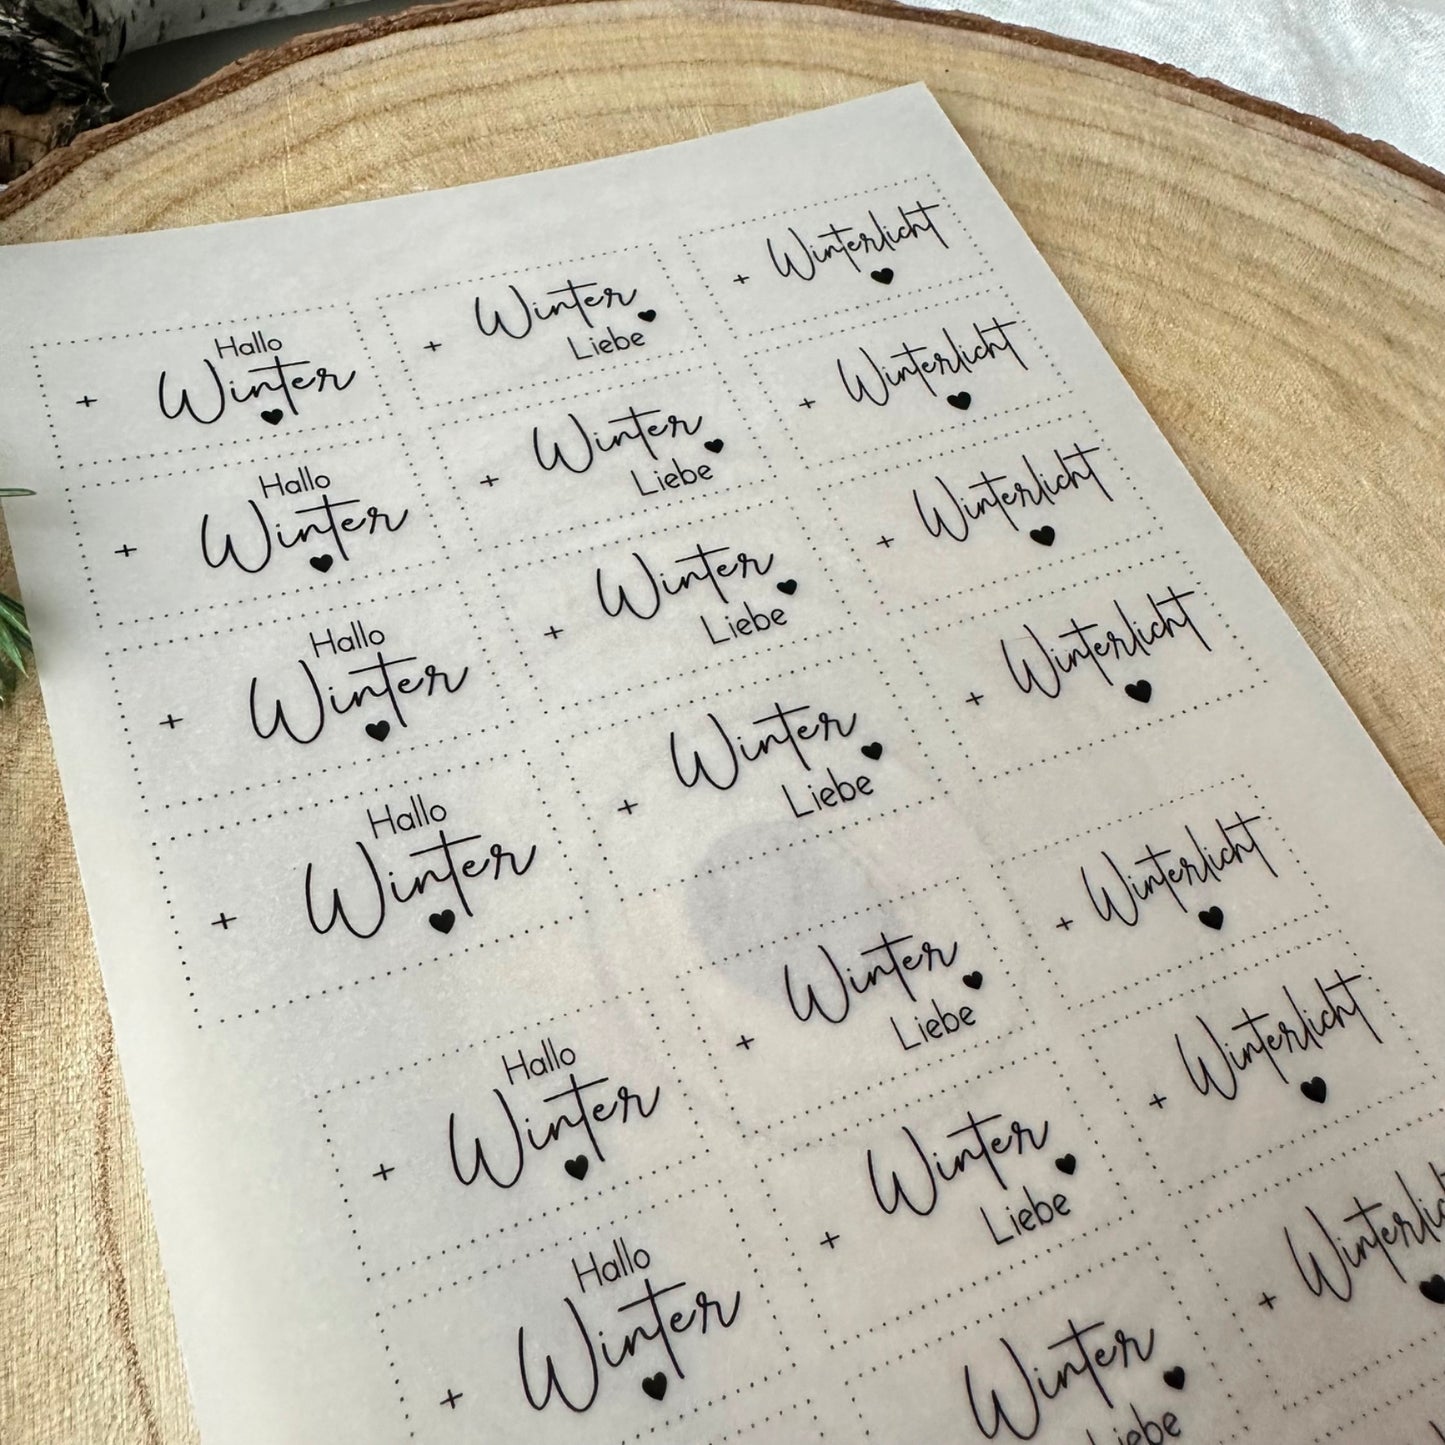 + Hallo
Winter
+ Winter
Liebe
+ Winterlicht
+ Hallo
Winter
+ Winter
Liebe
+ Winterlicht
+ Hallo
Winter
+ Winter
Liebe
+ Winterlicht
+ Hallo
Winter
+ Winter
Liebe
+ Winterlicht
+ Hallo
Winter
+ Winter
Liebe
+ Winterlicht
+ Hallo
Winter
+ Winter
Liebe
+ Winterlicht
Winter
Liebe
+ Winterlic